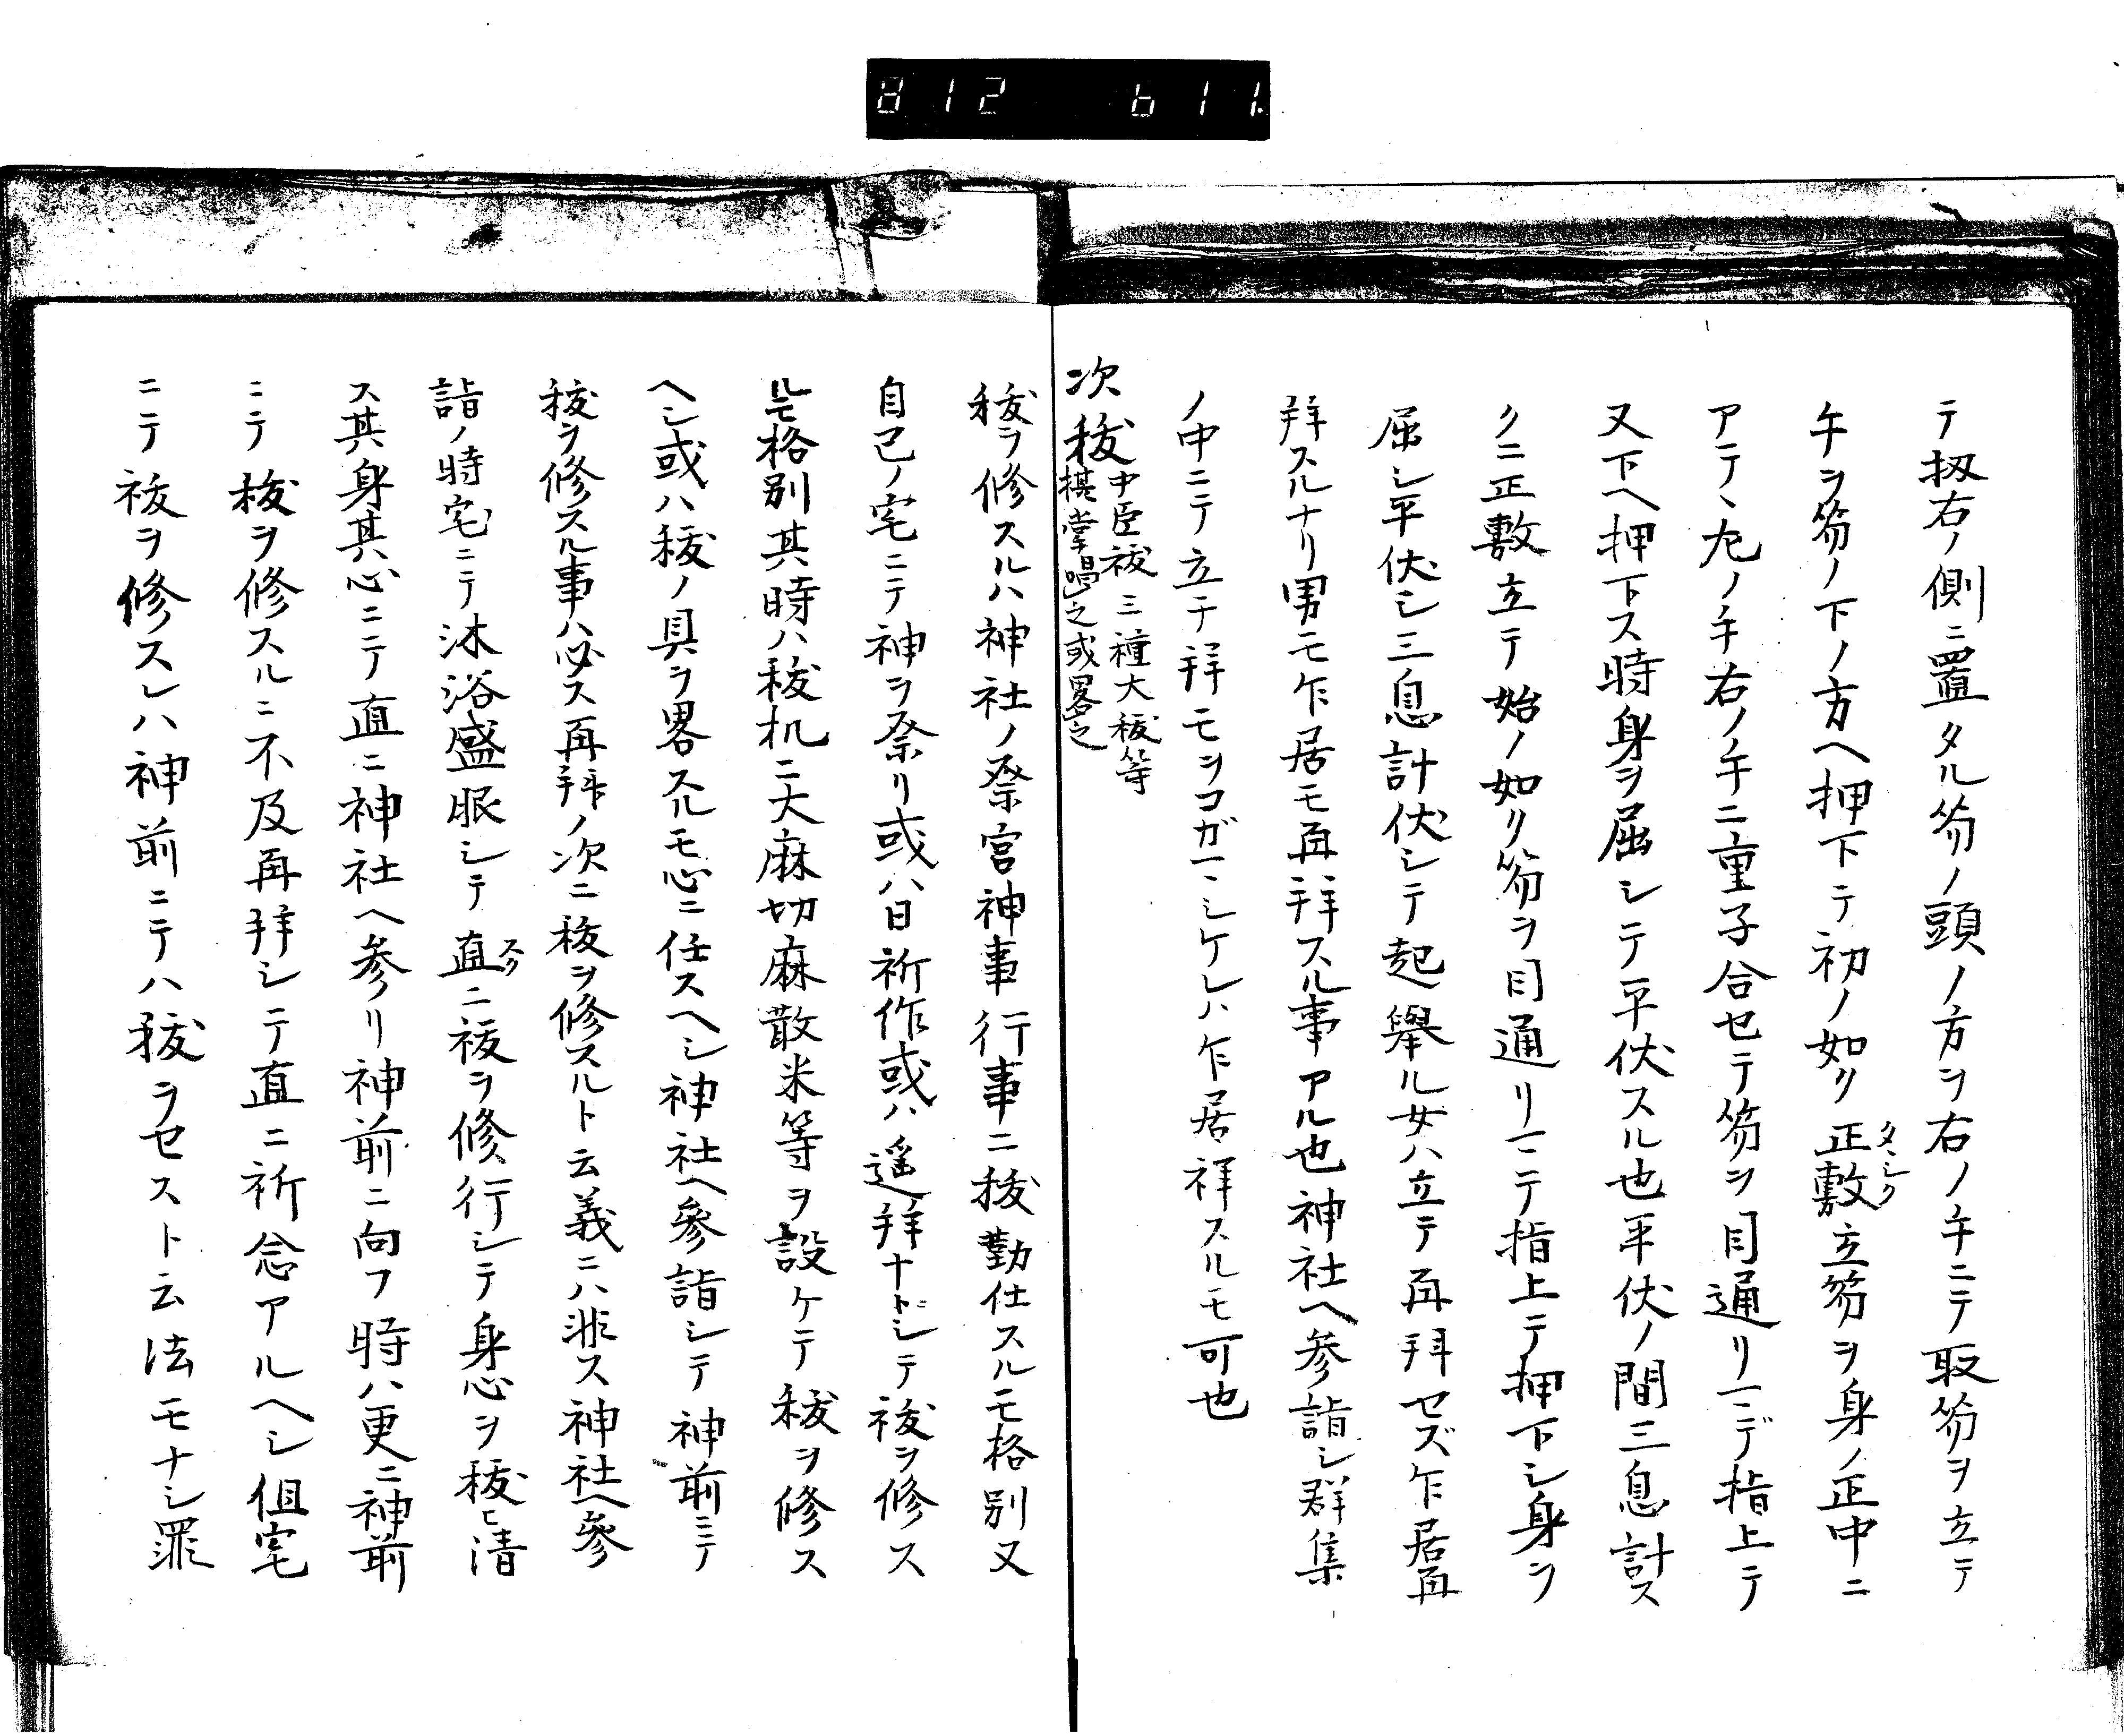 812 611.
テ扨右ノ側ニ置タル笏ノ頭ノ方ヲ右ノ手ニテ取笏ヲ立テ
手ヲ笏ノ下ノ方ヘ押下テ初ノ如ク正敷立笏ヲ身ノ正中ニ
タヽシク
アテヽ左ノ手右ノ手二重子合セテ笏ヲ目通リマデ指上テ
又下ヘ押下ス時身ヲ屈シテ平伏スル也平伏ノ間三息計ス
クニ正敷立テ始ノ如ク笏ヲ目通リマテ指上テ押下シ身ヲ
屈シ平伏シ三息計伏シテ起擧ル女ハ立テ再拜セズ乍居再
拜スルナリ男モ乍居モ再拜スル事アル也神社ヘ参詣シ群集
ノ中ニテ立チ拜モヲコガマシケレハ乍居拜スルモ可也
次祓
中臣祓三種大祓等
棋掌唱之或畧之
祓ヲ修スルハ神社ノ祭宮神事行事ニ祓勤仕スルモ格別又
自己ノ宅ニテ神ヲ祭リ或ハ日祈作或ハ遥拜ナトニシテ祓ヲ修ス
ルモ格別其時ハ祓机ニ大麻切麻散米等ヲ設ケテ祓ヲ修ス
ヘシ或ハ祓ノ具ヲ畧スルモ心ニ任スヘシ神社ヘ參詣シテ神前ニテ
祓ヲ修スル事ハ必ス再拜ノ次ニ祓ヲ修スルト云義ニハ非ス神社ヘ參
詣ノ時宅ニテ沐浴盛服シテ直ニ祓ヲ修行シテ身心ヲ祓ヒ清
スク
ス其身其心ニテ直ニ神社ヘ参リ神前ニ向フ時ハ更ニ神前
ニテ祓ヲ修スルニ不及再拜シテ直ニ祈念アルヘシ但宅
ニテ祓ヲ修スレハ神前ニテハ祓ヲセスト云法モナシ罪